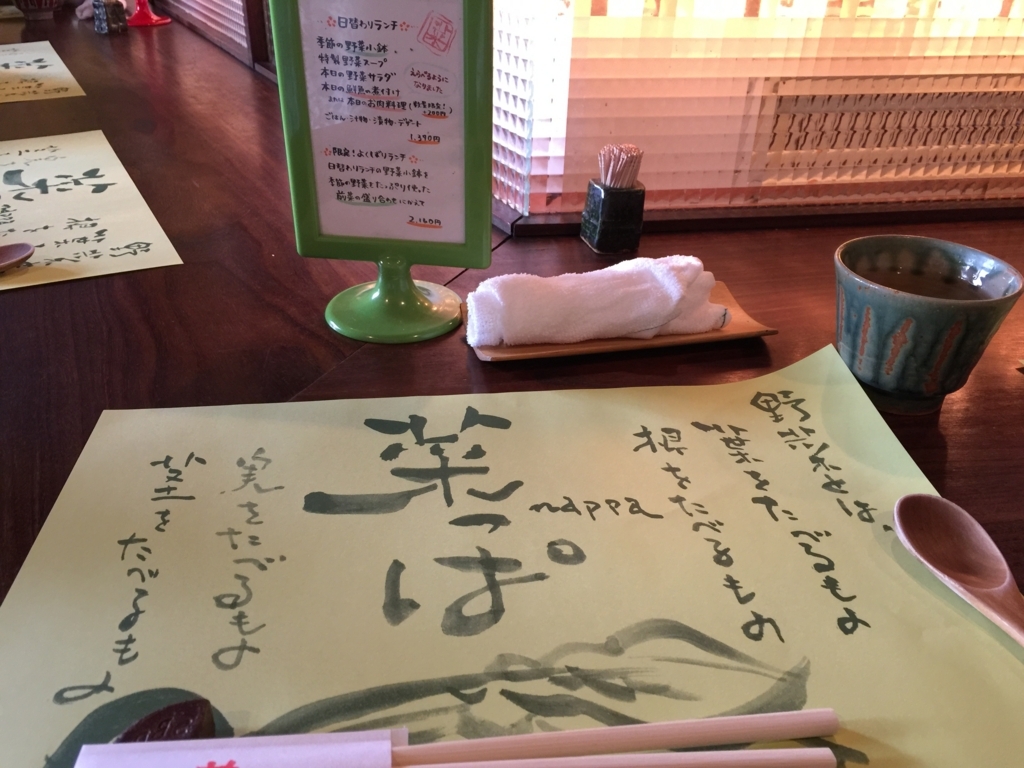 ☆日替わりランチ☆
季節の野菜小鉢
特製野菜スープ
本日の野菜サラダ
本日の鮮魚の煮付け
または 本日のお肉料理(数量限定!
+200円)
えらべるように
なりました
ごはん・汁物・漬物・デザート
1,390円
☆限定!よくばりランチ☆
日替わりランチの野菜小鉢を
季節の野菜をたっぷり使った
前菜の盛り合わせにかえて
2,160円
野菜とは、
葉をたべるもよ
根をたべるもよ
菜っぱ
nappa
実をたべるもよ
茎をたべるもよ